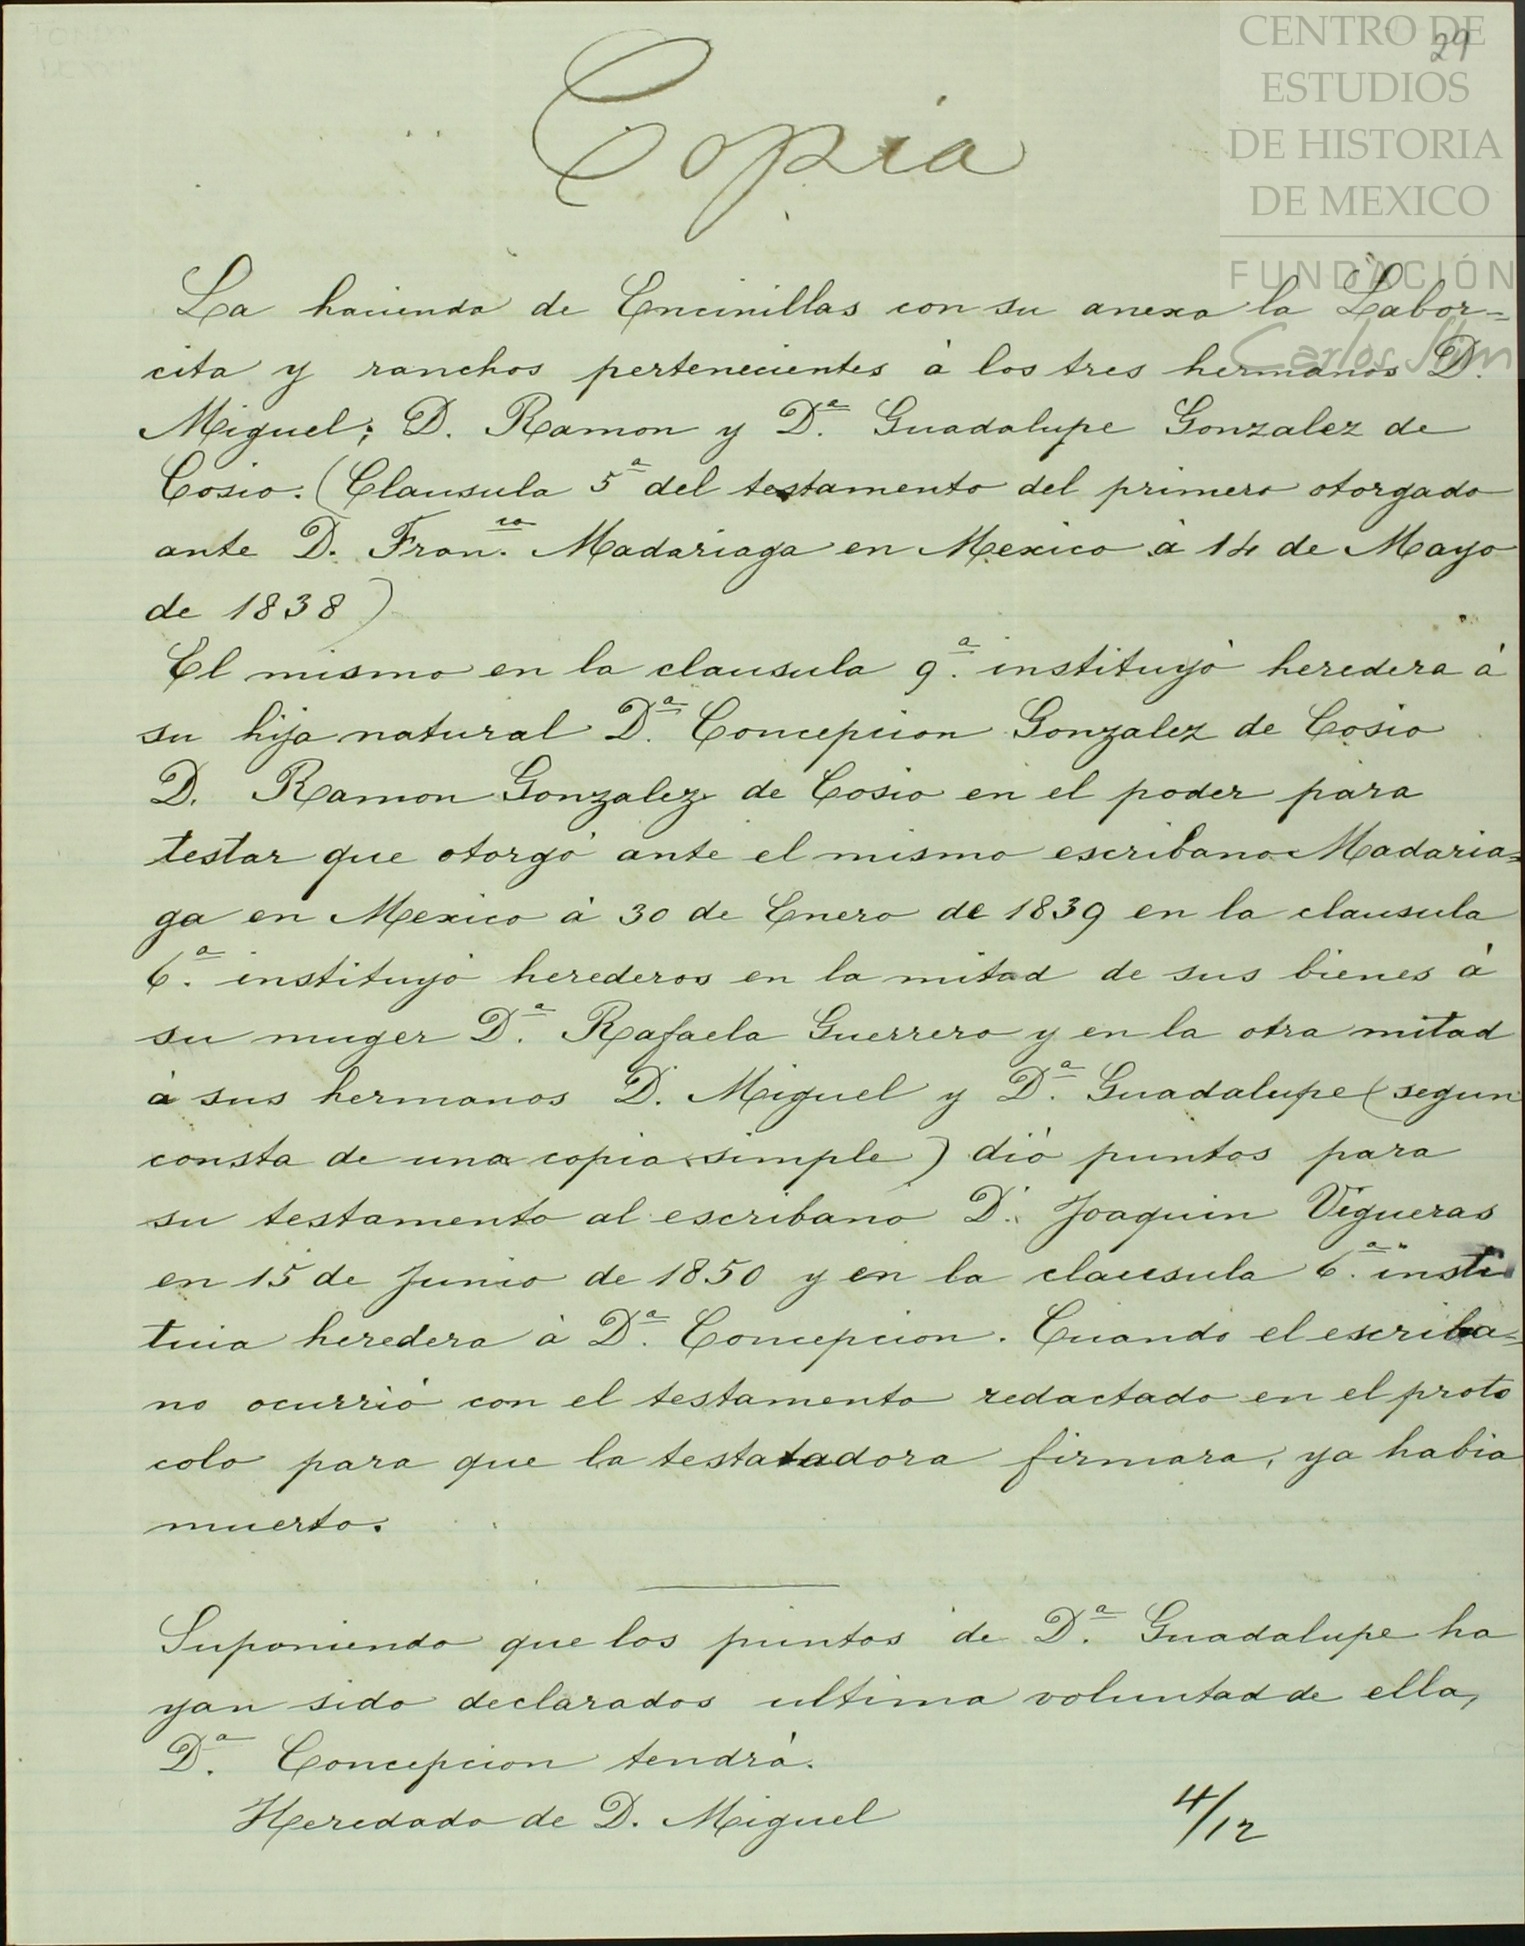 CENTRO DE
ESTUDIOS
DE HISTORIA
DE MEXICO
FUNDACIÓN
Carlos Slim
29
Copia
La hacienda de Encinillas con su anexa la Labor=
cita y ranchos pertenecientes á los tres hermanos D.
Miguel; D. Ramon y D.ª Guadalupe Gonzalez de
Cosio. (Clausula 5ª del testamento del primero otorgado
ante D. Fran.co Madariaga en Mexico á 14 de Mayo
de 1838)
El mismo en la clausula 9.ª instituyó heredera á
su hija natural D.ª Concepcion Gonzalez de Cosio
D. Ramon Gonzalez de Cosio en el poder para
testar que otorgó ante el mismo escribano Madaria=
ga en Mexico á 30 de Enero de 1839 en la clausula
6.ª instituyó herederos en la mitad de sus bienes á
su muger D.ª Rafaela Guerrero y en la otra mitad
á sus hermanos D. Miguel y D.ª Guadalupe (segun
consta de una copia simple) dió puntos para
su testamento al escribano D. Joaquin Vigueras
en 15 de Junio de 1850 y en la clausula 6.ª insti
tuia heredera á D.ª Concepcion. Cuando el escriba=
no ocurrió con el testamento redactado en el proto
colo para que la testatadora firmara, ya habia
muerto.
Suponiendo que los puntos de D.ª Guadalupe ha
yan sido declarados ultima voluntad de ella,
D.ª Concepcion tendrá.
Heredado de D. Miguel 4/12